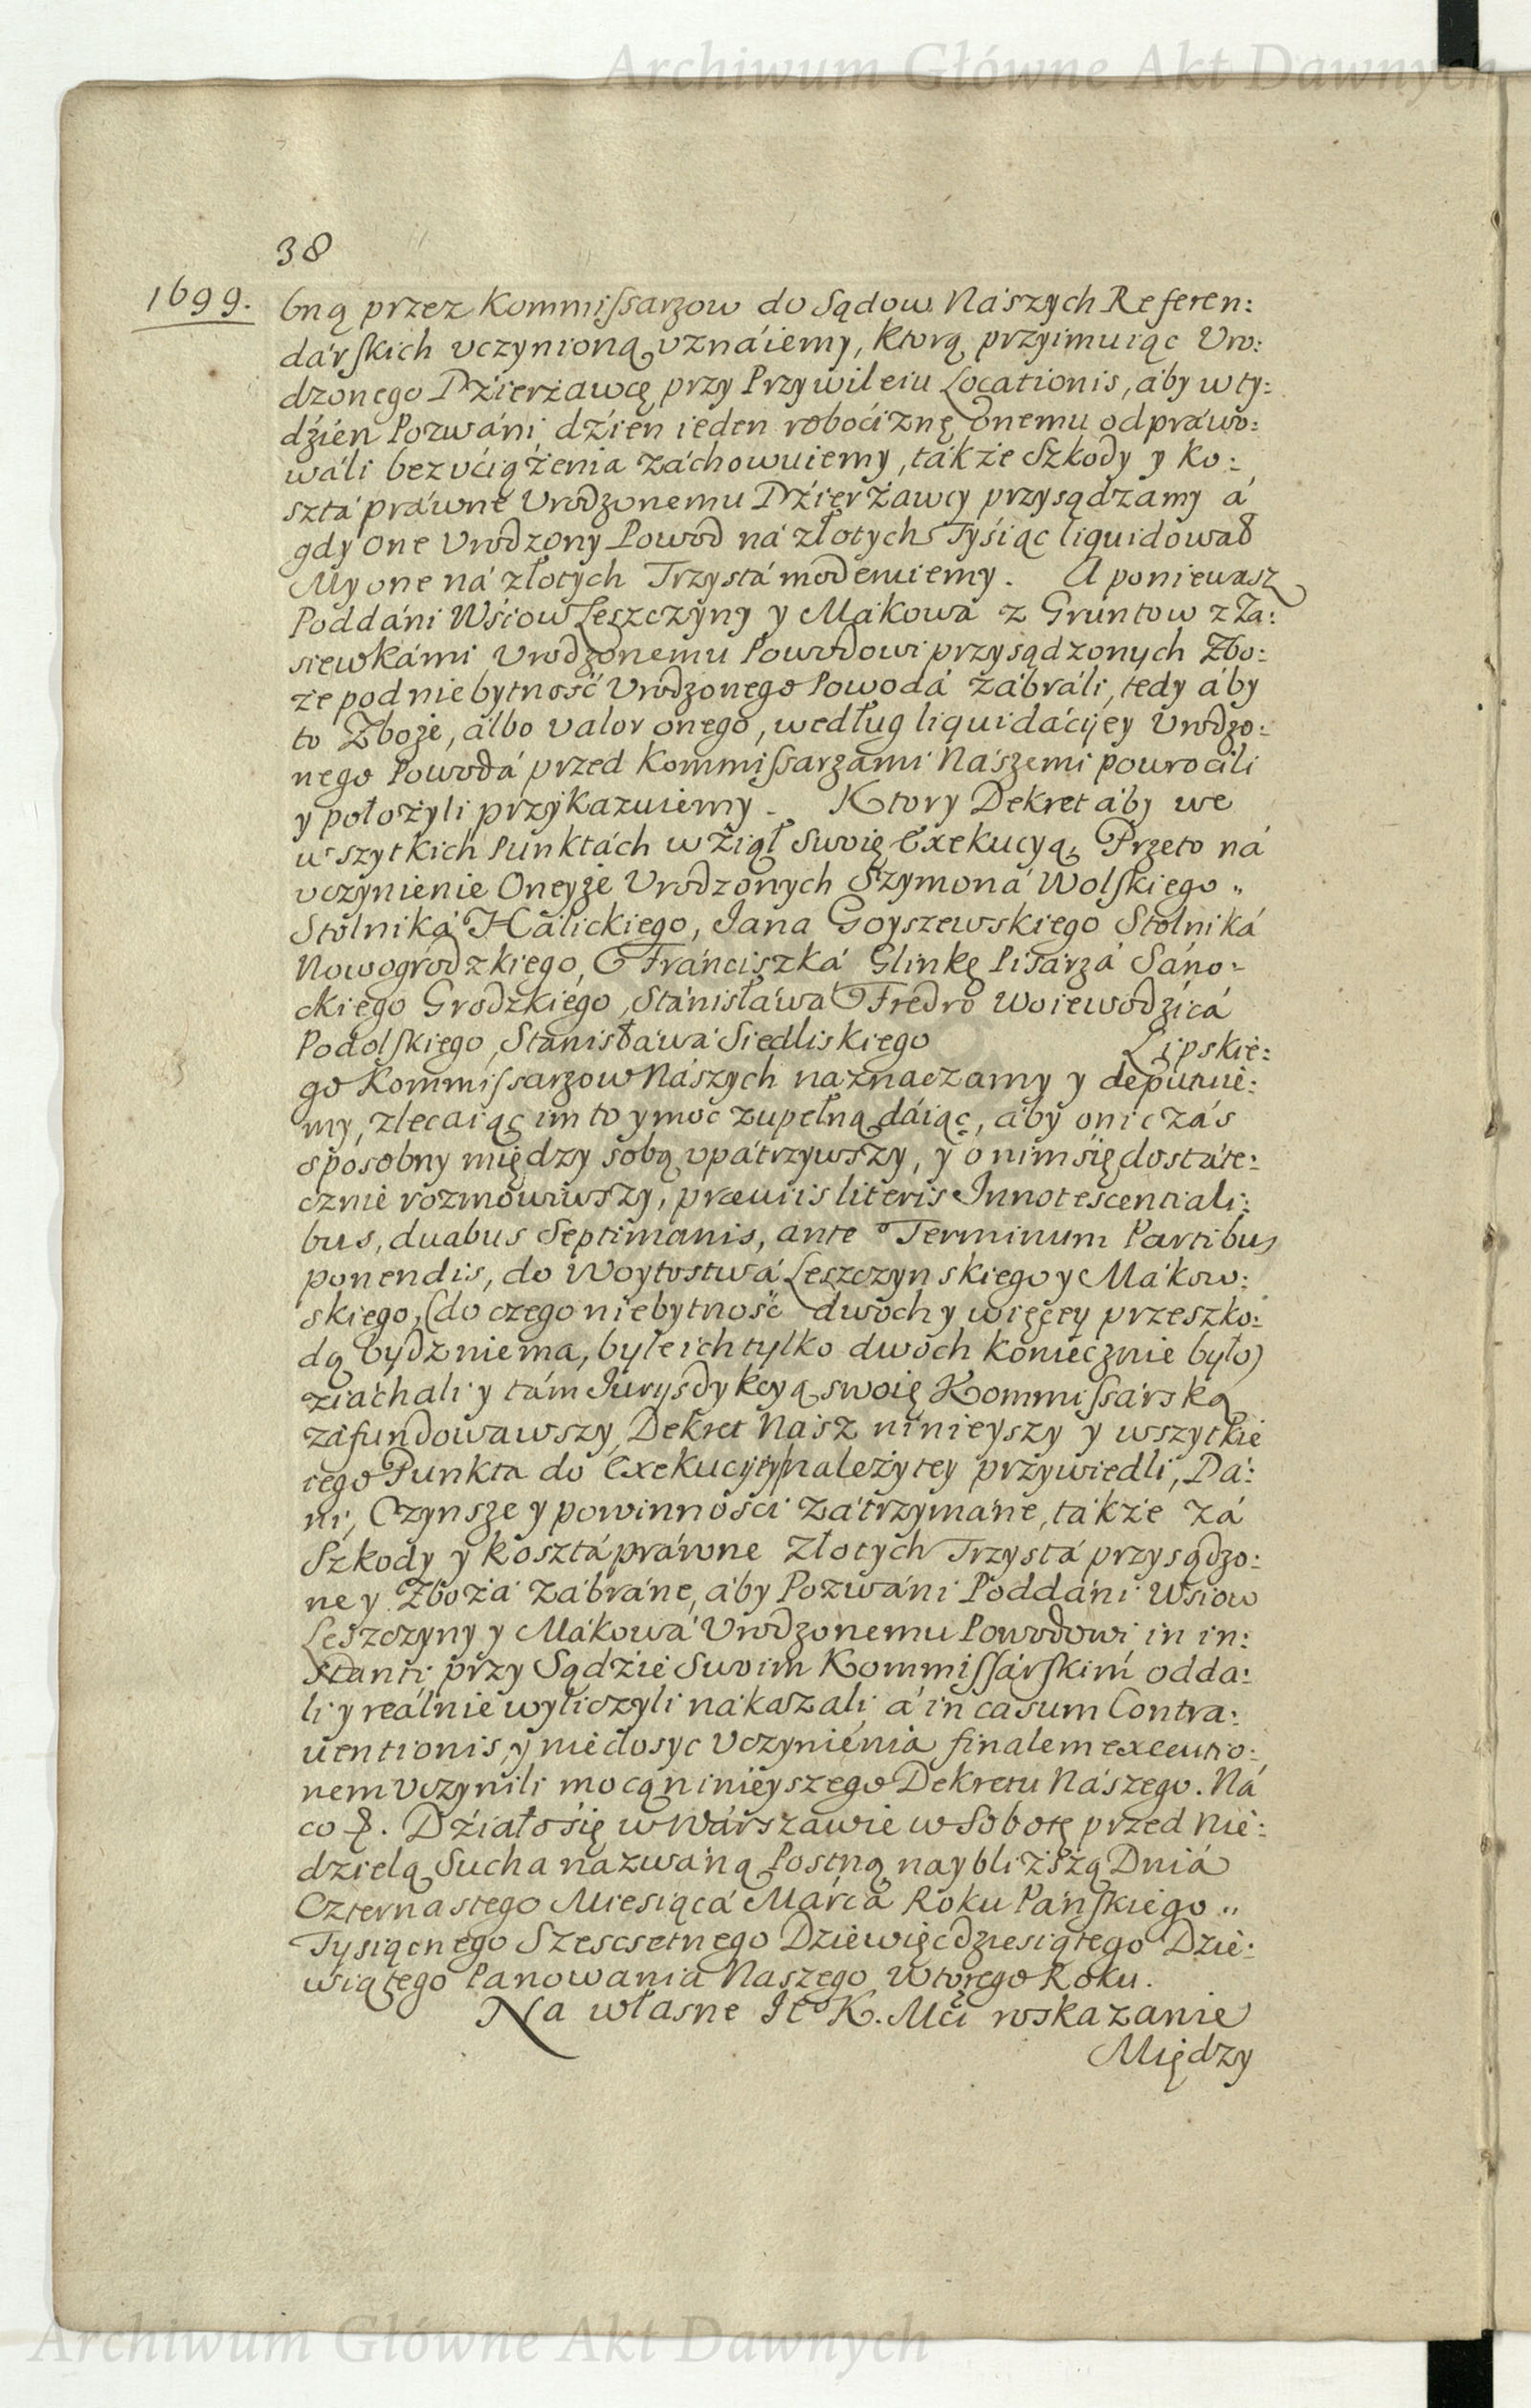 Archiwum Główne Akt Dawnych
38
1699. bną przez Kommissarzow do Sądow Nászych Referen:
dárskich vczynioną vznáiemy, ktorą przyimuiąc Vro:
dzonego Dzierżawcę przy Przywileiu Locationis, áby w ty:
dźień Pozwáni dźień ieden robociznę onemu odpráwo:
wáli bez vciążenia záchowuiemy, tákże Szkody y Ko:
sztá práwne Vrodzonemu Dźierżawcy przysądzamy á
gdy one Vrodzony Powod ná złotych Tyśiąc liquidował
My one ná złotych Trzystá moderuiemy. A ponieważ
Poddáni Wśiow Leszczyny y Mákowá z Gruntow z Za:
siewkámi Vrodzonemu Powodowi przysądzonych Zbo:
że pod niebytność Vrodzonego Powodá zábráli, tedy áby
to Zboże, álbo valor onego, według liquidácyey Vrodzo:
nego Powodá przed Kommissarzámi Nászemi powrocili
y położyli przykazuiemy. Ktory Dekret áby we
wszytkich Punktách wźiął Swoię Exekucyą, Przeto ná
vczynienie Oneyże Vrodzonych Szymoná Wolskiego „
Stolniká Hálickiego, Jana Goyszewskiego Stolniká
Nowogrodzkiego, Fránciszká Glinkę Pisárzá Sáno:
ckiego Grodzkiego, Stánisłáwá Fredrο Woiewodźicá
Podolskiego, Stánisłáwá Siedliskiego Lipskie:
go Kommissarzow Nászych náznaczamy y deputuie:
my, zlecaiąc im to y moc zupełną dáiąc, áby oni czás
sposobny między sobą vpátrzywszy, y o nim się dostáte:
cznie rozmowiwszy, præuiis literis Innotescentiali:
bus, duabus Septimanis, ante Terminum Partibus
ponendis, do Woytostwá Leszczynskiego y Mákow:
skiego, (do czego niebytność dwoch y więcey przeszko:
dą bydz niema, byle ich tylko dwoch koniecznie było)
ziáchali y tám Jurysdykcyą swoię Kommissárską
záfundowawszy, Dekret Nász ninieyszy y wszytkie
iego Punkta do Exekucyey należytey przywiedli, Dá:
ni, Czynsze y powinności zátrzymáne, tákże zá
Szkody y Kosztá práwne Złotych Trzystá przysądzo:
ne y Zbożá zábráne, áby Pozwáni Poddáni Wsiow
Leszczyny y Mákowá Vrodzonemu Powodowi in in:
stanti przy Sądzie Swoim Kommissárskim odda:
li y reálnie wyliczyli nákazali á in casum Contra:
uentionis, y niedosyc Vczynienia finalem executio:
nem vczynili mocą ninieyszego Dekretu Nászego. Ná
co &. Działo się w Wárszawie w Sobotę przed Nie:
dzielą Sucha nazwáną Postną naybliższą Dniá
Czternastego Miesiącá Márcá Roku Páńskiego „
Tysiącnego Szescsetnego Dziewięcdziesiątego Dzie:
wiątego Panowania Naszego Wtorego Roku.
Na własne Je° K. Mći roskazanie
Między
Archiwum Główne Akt Dawnych